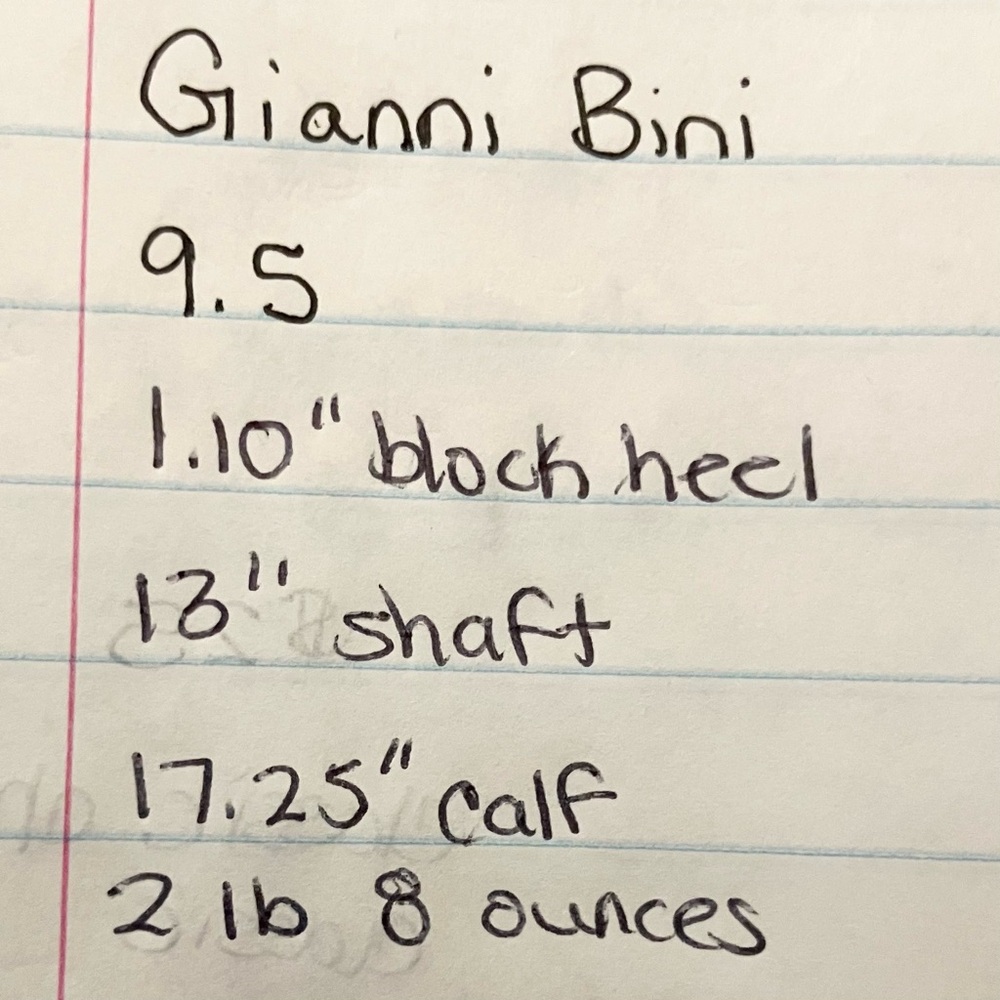 Gianni Bini
9.5
1.10" block heel
13" shaft
17.25" calf
2 lb 8 ounces